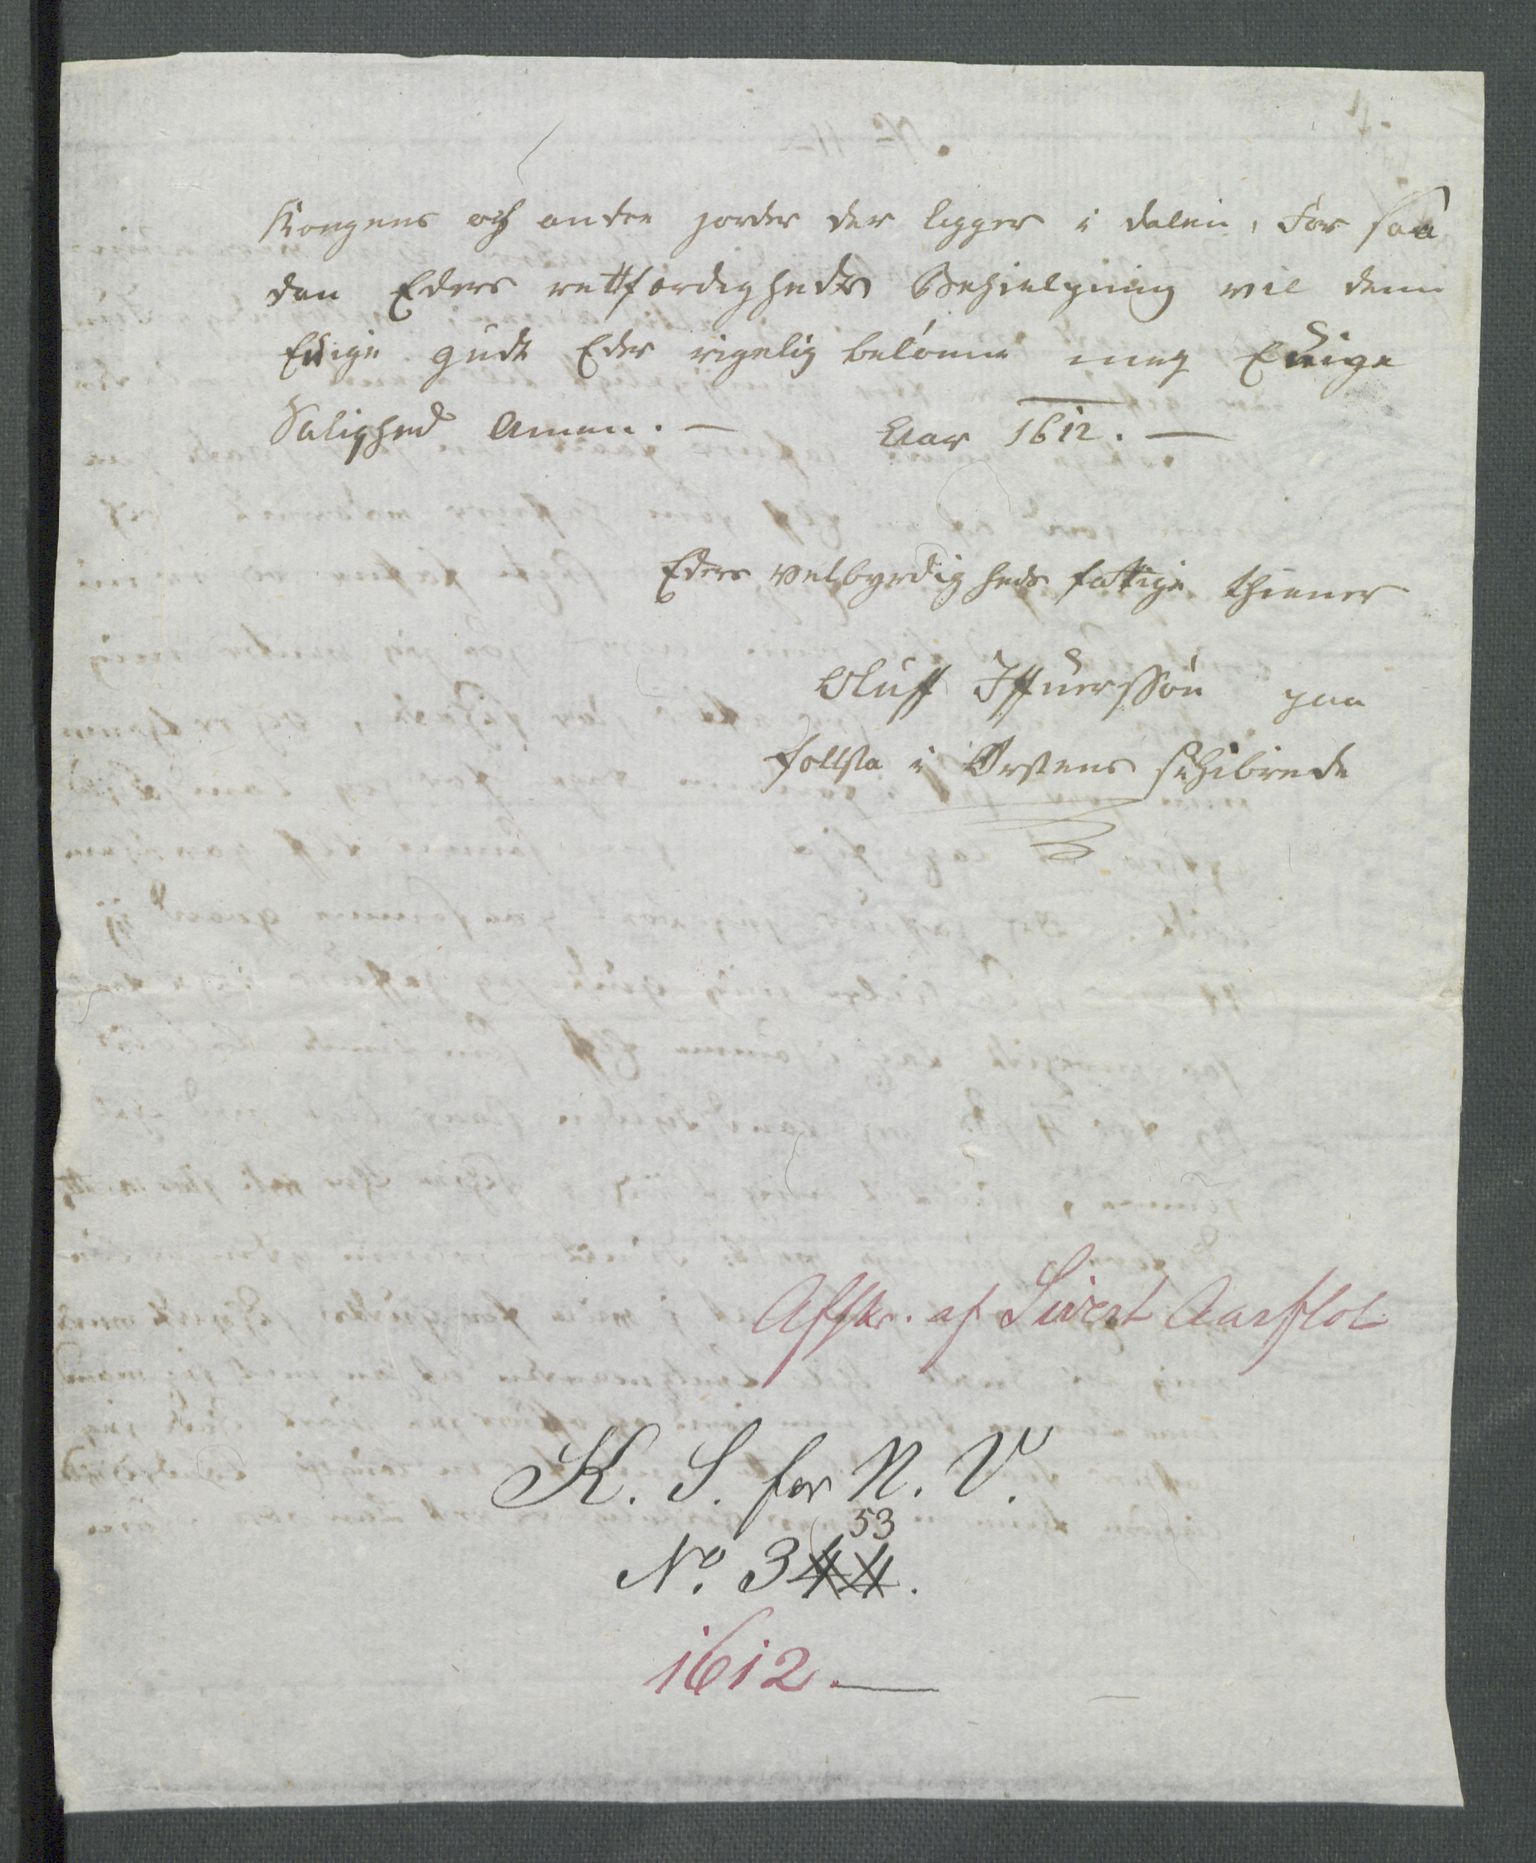 Kongens och andre jorder der ligger i dalen, For saa
dan Eders rettferdigheds Behielpning vil denn
Euige gudt Eder rigelig belönne meg Euige
Salighed Amen. — Aar 1612. —
Eders velbyrdigheds fattige thiener
Oluff Iffuerssön paa
follsta i Örstens schibrede
Afskr. af Sivert Aarflot
K. S. for N. V.
53
No. 344.
1612. —